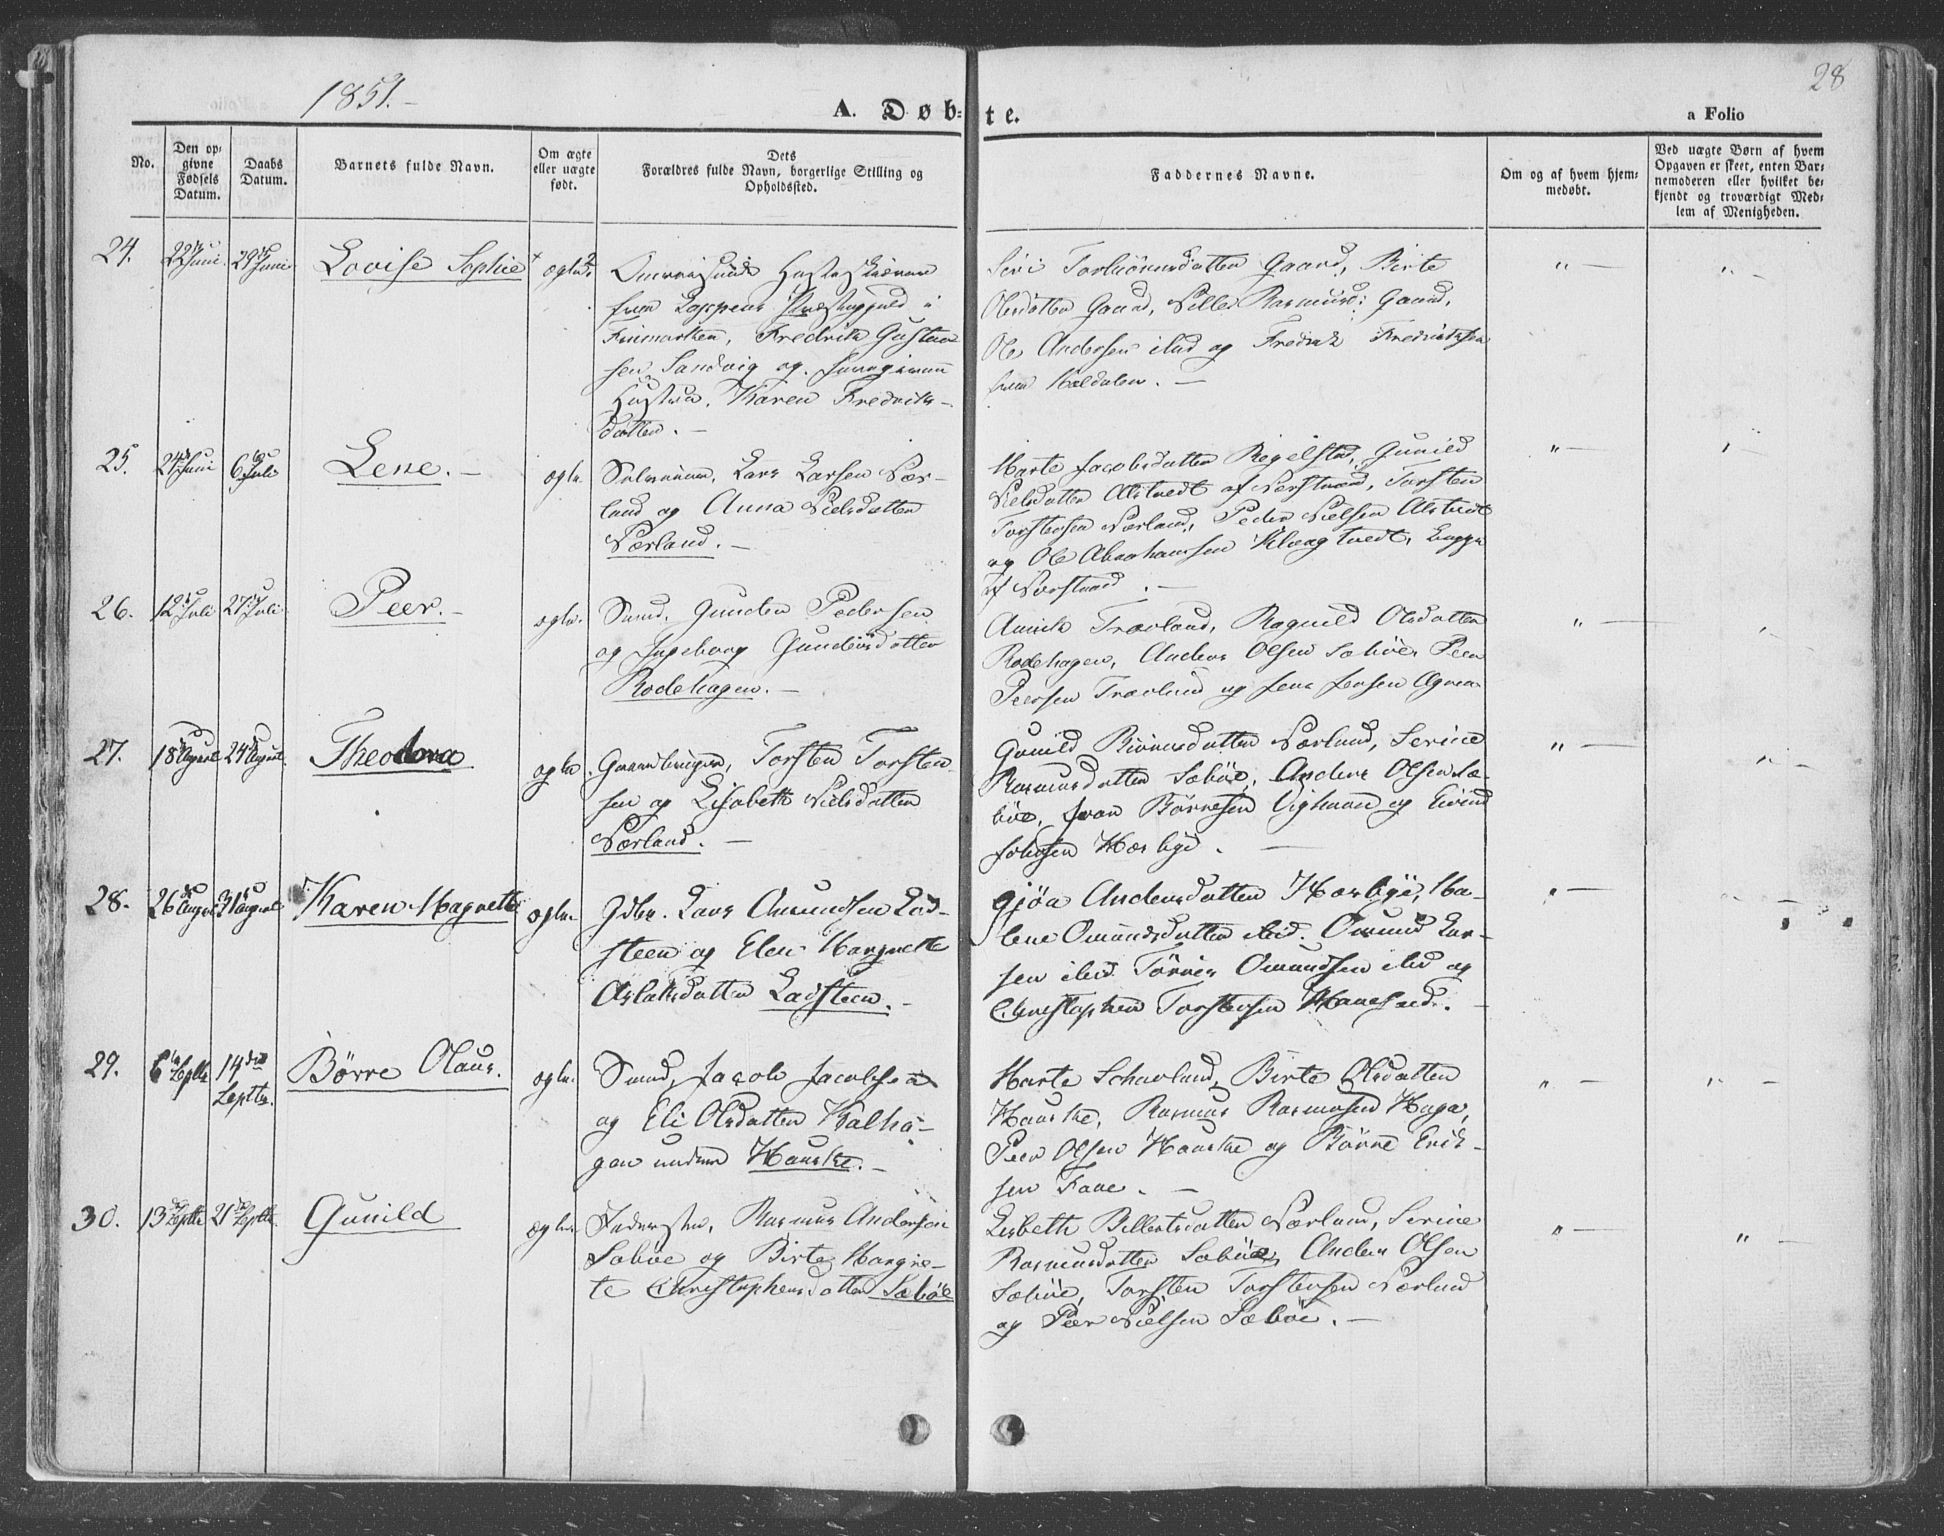 1851.-
28
A. Døb=te.
a Folio
No.
Den op-
givne
Fødsels
Datum.
Daabs
Datum.
Barnets fulde Navn.
Om ægte
eller uægte
født.
Dets
Forældres fulde Navn, borgerlige Stilling og
Opholdssted.
Faddernes Navne.
Om og af hvem hjem-
medøbt.
Ved uægte Børn af hvem
Opgaven er skeet, enten Bar-
nemoderen eller hvilket be-
kjendt og troværdigt Med-
lem af Menigheden.
24. 22 Juni 29 Juni Lovise Sophie
fra Loppens Præstegjeld i
Finmarken, Fredrik Gustav
sen Sandvig og
Hustru, Karen Fredriks-
datter. -
Siri Torbiörnsdatter Gaard, Birte
Olsdatter Gaard, Sille Rasmusd: Gaard,
Ole Andersen ibid og Fredrik Fredriksen
fra
25. 24 Juni 6 Juli Lene. - ægte.
Lars Larsen Nær-
land og Anna Nielsdatter
Nærland. -
Marte Jacobsdatter Regelstad, Gunild
Nielsdatter Alstvedt af Nerstrand, Torsten
Torstensen Nærland, Peder Nielsen Alstvedt
og Ole Abrahamsen
af Nerstrand. -
26. 12 Juli 27 Juli Peer. - ægte.
Smed, Gunder Pedersen
og Ingeborg Gundersdatter
Rodehagen. -
Træland, Ragnild Olsdatter
Rodehagen, Anders Olsen Sæbøe, Peer
Peersen Træland og Jens Jensen
27. 18 August 24 August Theodora ægte.
Gaardbruger, Torsten Torsten
sen og Lisabeth Nielsdatter
Nærland. -
Gunild Biörnsdatter Nærland, Serine
Rasmusdatter Sæböe, Anders Olsen Sæ-
böe, Iver Börresen Vignæs og Eivind
Johnsen Hæsbye. -
28. 26 August 31 August Karen Magrette ægte.
Gdbr. Lars Omundsen Lad-
steen og Elen Margrette
Aslaksdatter Ladsteen. -
Gjöa Andersdatter Hæsbye, Ma-
lene Omundsdatter ibid. Omund Lar-
sen ibid. Törres Omundsen ibid og
Christopher Torstensen
29. 6 Septbr 14den Septbr. Börre Olaus. ægte.
Smed, Jacob Jacobsen
og Eli Olsdatter Kalha-
gen under Hauske. -
Marte Schavland, Birte Olsdatter
Hauske, Rasmus Rasmusen Haga,
Peer Olsen Hauske og Börre Erik-
sen Faae. -
30. 13 Septbr 21 Septbr. Gunild ægte.
Inderste, Rasmus Andersen
Sæböe og Birte Margre-
te Christophersdatter Sæböe
Lisbeth Billertsdatter Nærland, Serine
Rasmusdatter Sæböe, Anders Olsen
Sæböe, Torsten Torstensen Nærland
og Peer Nielsen Sæböe. -